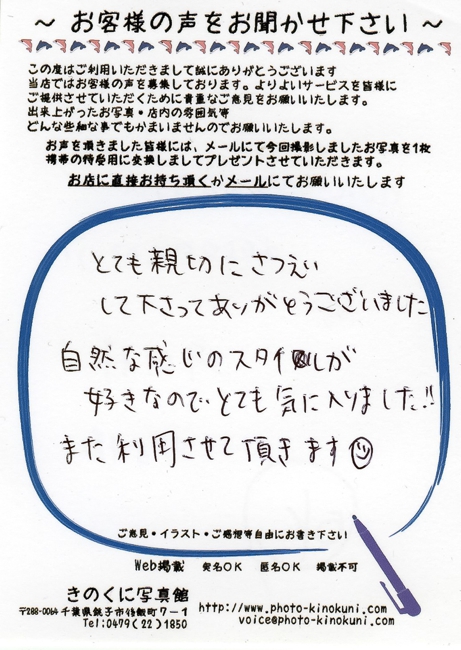 ～ お客様の声をお聞かせ下さい ～
この度はご利用いただきまして誠にありがとうございます
当店ではお客様の声を募集しております。よりよいサービスを皆様に
ご提供させていただくために貴重なご意見をお願いいたします。
出来上がったお写真・店内の雰囲気等
どんな些細な事でもかまいませんのでお願いいたします。
お声を頂きました皆様には、メールにて今回撮影しましたお写真を1枚
携帯の待受用に変換しましてプレゼントさせていただきます。
お店に直接お持ち頂くかメールにてお願いいたします
とても親切にさつえい
して下さってありがとうございました
自然な感じのスタイルが
好きなので、とても気に入りました!!
また利用させて頂きます
ご意見・イラスト・ご感想等自由にお書き下さい
Web掲載 実名OK 匿名OK 掲載不可
きのくに写真館
〒288-0064 千葉県銚子市 町7－1
Tel:0479(22)1850
http://www.photo-kinokuni.com
voice@photo-kinokuni.com